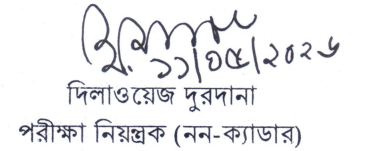 ১১/০৫/২০২৬
দিলাওয়েজ দুরদানা
পরীক্ষা নিয়ন্ত্রক (নন-ক্যাডার)